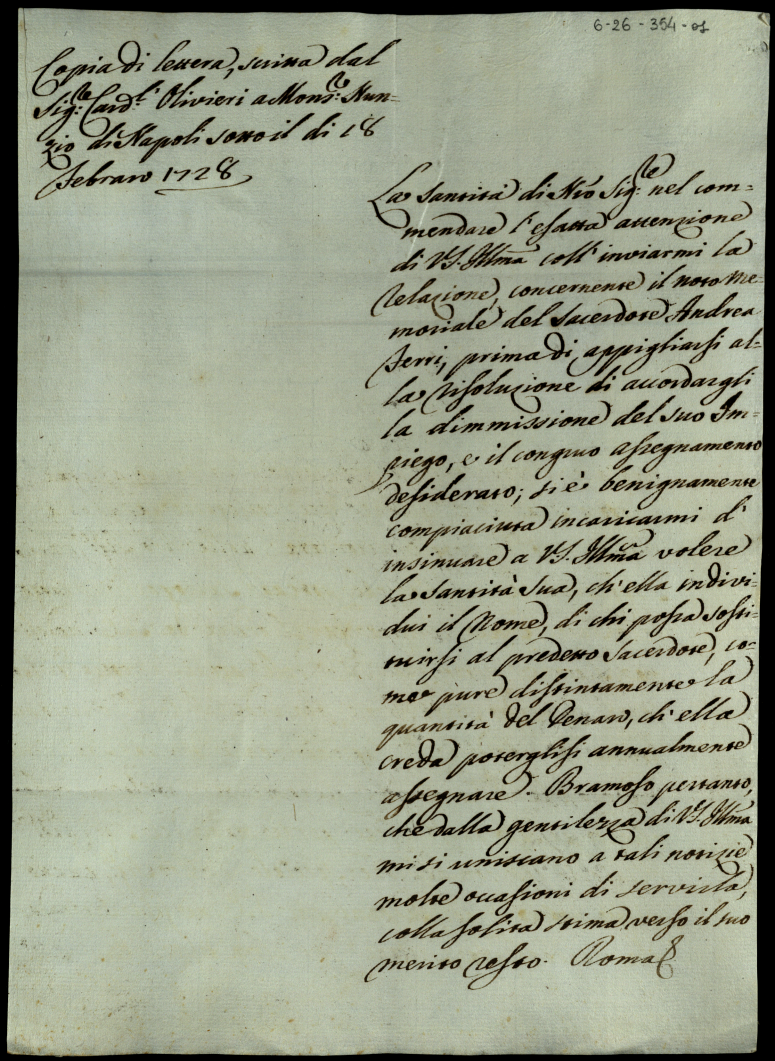 6-26-354-01
Copia di lettera, scritta dal
Sig.re Card.l Olivieri a Mons.re Nun-
zio di Napoli sotto il di 18
Febraro 1728
La Santità di Nro Sig.re nel com-
mendare l'esatta attenzione
di V.S. Illma coll' inviarmi la
relazione, concernente il noto me-
moriale del Sacerdote Andrea
Ferri, prima di appigliarsi al-
la risoluzione di accordargli
la dimmissione del suo Im-
piego, e il congruo assegnamento
desiderato; si è benignamente
compiaciuta incaricarmi d'
insinuare a V.S. Illma volere
la Santità Sua, ch'ella indivi-
dui il Nome, di chi possa sosti-
tuirsi al predetto Sacerdote, co-
me pure distintamente la
quantità del Denaro, ch'ella
creda poterglisi annualmente
assegnare. Bramoso pertanto,
che dalla gentilezza di V.S. Illma
mi si uniscano a tali notizie
molte occasioni di servirla,
colla solita stima verso il suo
merito resto. Roma